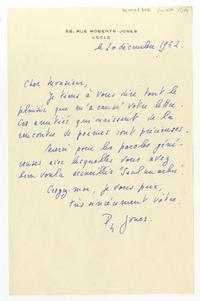 66, RUE ROBERTS-JONES
UCCLE
le 20 décembre 1952
Cher Monsieur,
Je tiens à vous dire tout le
plaisir que m'a causé votre lettre.
Ces amitiés qui naissent de la
rencontre de poèmes sont précieuses.
Merci pour les paroles géné-
reuses avec lesquelles vous avez
bien voulu accueillir
Croyez-moi, je vous prie,
très sincèrement vôtre.
Ph Jones.